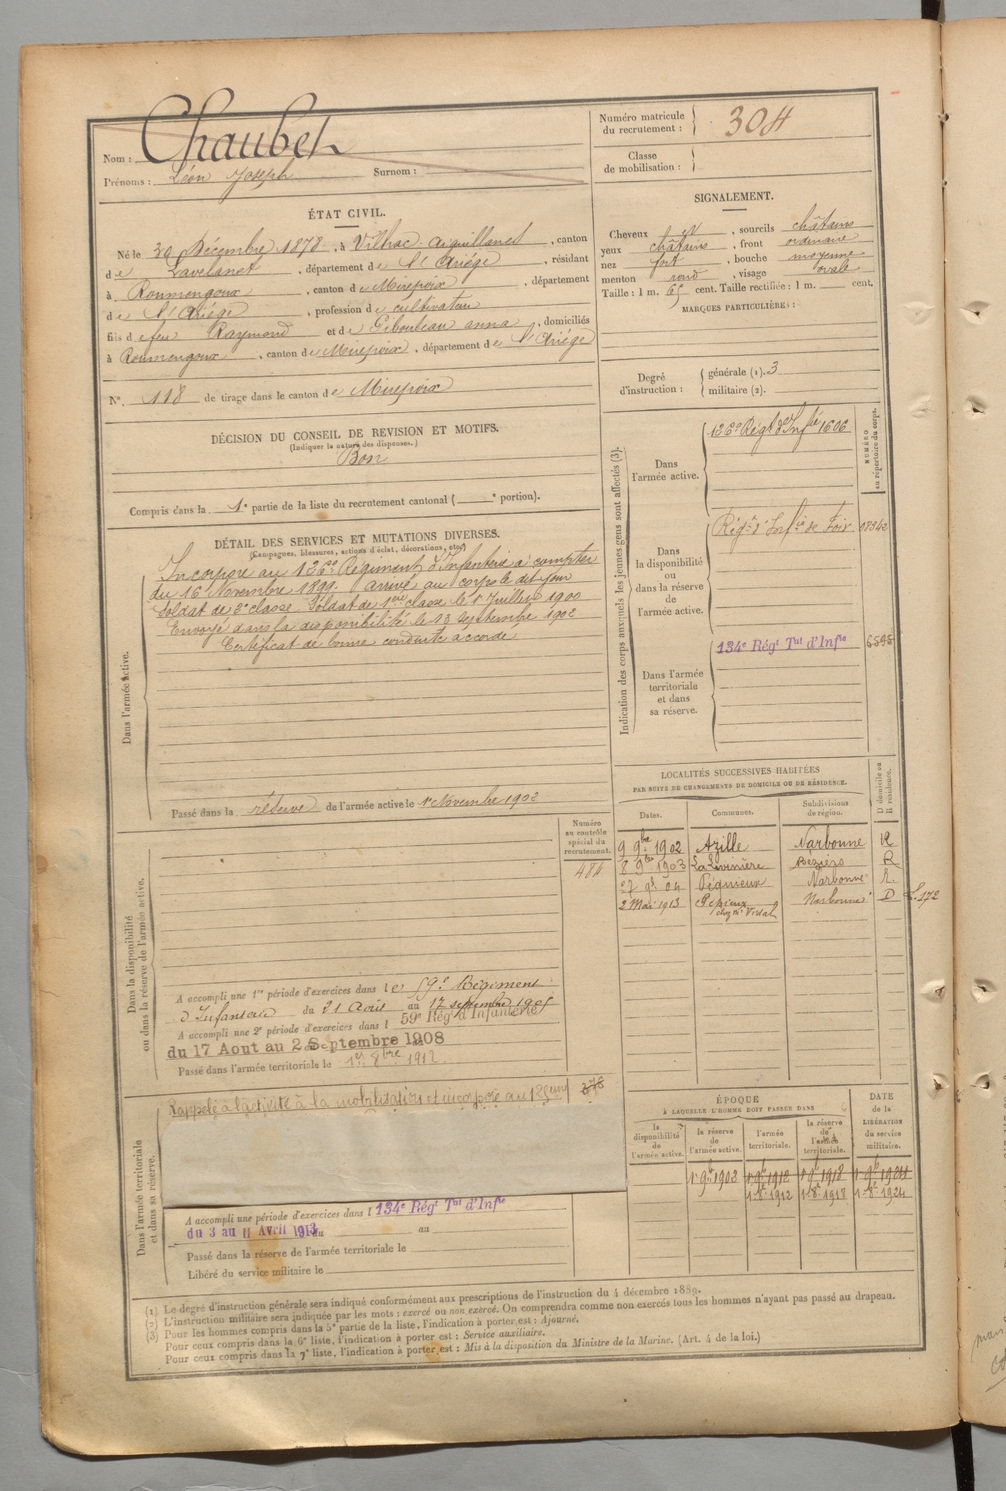 Nom : Chaubet
Prénoms : Léon Joseph Surnom :
Numéro matricule
du recrutement : 304
Classe
de mobilisation :
ÉTAT CIVIL.
Né le 30 Décembre 1878, à Vilhac-Aiguillanes, canton
de Lavelanet, département de l'Ariége, résidant
à Roumengoux, canton de Mirepoix, département
de l'Ariége, profession de cultivateur
fils de feu Raymond et de Gibouleau anna, domiciliés
à Roumengoux, canton de Mirepoix, département de l'Ariége
N°. 118 de tirage dans le canton de Mirepoix
SIGNALEMENT.
Cheveux et, sourcils châtains
yeux châtains, front ordinaire
nez fort, bouche moyenne
menton rond, visage ovale
Taille : 1 m. 65 cent. Taille rectifiée : 1 m. cent.
MARQUES PARTICULIÈRES :
Degré
d'instruction :
générale (1). 3
militaire (2).
DÉCISION DU CONSEIL DE REVISION ET MOTIFS.
(Indiquer la nature des dispenses.)
Bon
Compris dans la 1e partie de la liste du recrutement cantonal ( e portion).
DÉTAIL DES SERVICES ET MUTATIONS DIVERSES.
(Campagnes, blessures, actions d'éclat, décorations, etc.)
Dans l'armée active.
Incorporé au 126eme Régiment d'Infanterie à compter
du 16 Novembre 1899. Arrivé au corps le dit jour
Soldat de 2e classe. Soldat de 1ere classe le 1er Juillet 1900
Envoyé dans la disponibilité le 18 Septembre 1902
Certificat de bonne conduite accordé
Passé dans la réserve de l'armée active le 1er Novembre 1902
Indication des corps auxquels les jeunes gens sont affectés (3).
NUMÉRO
au répertoire du corps.
Dans
l'armée active.
126e Régt d'Infie 1606
Dans
la disponibilité
ou
dans la réserve
de
l'armée active.
Régt d'Infie de Foix
Dans l'armée
territoriale
et dans
sa réserve.
134e Régt Tal d'Infie
LOCALITÉS SUCCESSIVES HABITÉES
PAR SUITE DE CHANGEMENTS DE DOMICILE OU DE RÉSIDENCE.
Dates. Communes. Subdivisions de région. D domicile ou R résidence.
9 9bre 1902 Azille Narbonne R
8 9bre 1903 La Livinière Béziers R
Narbonne R.
2 Mai 1913 Pépieux Narbonne D
chez Mr Vidal
Dans la disponibilité
ou dans la réserve de l'armée active.
Numéro
au contrôle
spécial du
recrutement.
484
A accompli une 1re période d'exercices dans le 59e Régiment
d'Infanterie du 21 Août au 17 septembre 1905
A accompli une 2e période d'exercices dans l 59e Régt d'Infanterie
du 17 Aout au 2 Septembre 1908
Passé dans l'armée territoriale le 1er 8bre 1912
Dans l'armée territoriale
et dans sa réserve.
Rappelé à l'activité à la mobilisation et incorporé au
A accompli une période d'exercices dans l 134e Régt Tal d'Infie
du 3 au 11 Avril 1913 du au
Passé dans la réserve de l'armée territoriale le
Libéré du service militaire le
ÉPOQUE
À LAQUELLE L'HOMME DOIT PASSER DANS
la disponibilité de l'armée active.
la réserve de l'armée active.
l'armée territoriale.
la réserve de l'armée territoriale.
DATE
de la
LIBÉRATION
du service
militaire.
1er 9b 1902 1er 9b 1912 1er 9b 1918 1er 9b 1924
1-8b 1912 1-8b 1918 1-8b 1924
(1) Le degré d'instruction générale sera indiqué conformément aux prescriptions de l'instruction du 4 décembre 1889.
(2) L'instruction militaire sera indiquée par les mots : exercé ou non exercé. On comprendra comme non exercés tous les hommes n'ayant pas passé au drapeau.
(3) Pour les hommes compris dans la 5e partie de la liste, l'indication à porter est : Ajourné.
Pour ceux compris dans la 6e liste, l'indication à porter est : Service auxiliaire.
Pour ceux compris dans la 7e liste, l'indication à porter est : Mis à la disposition du Ministre de la Marine. (Art. 4 de la loi.)